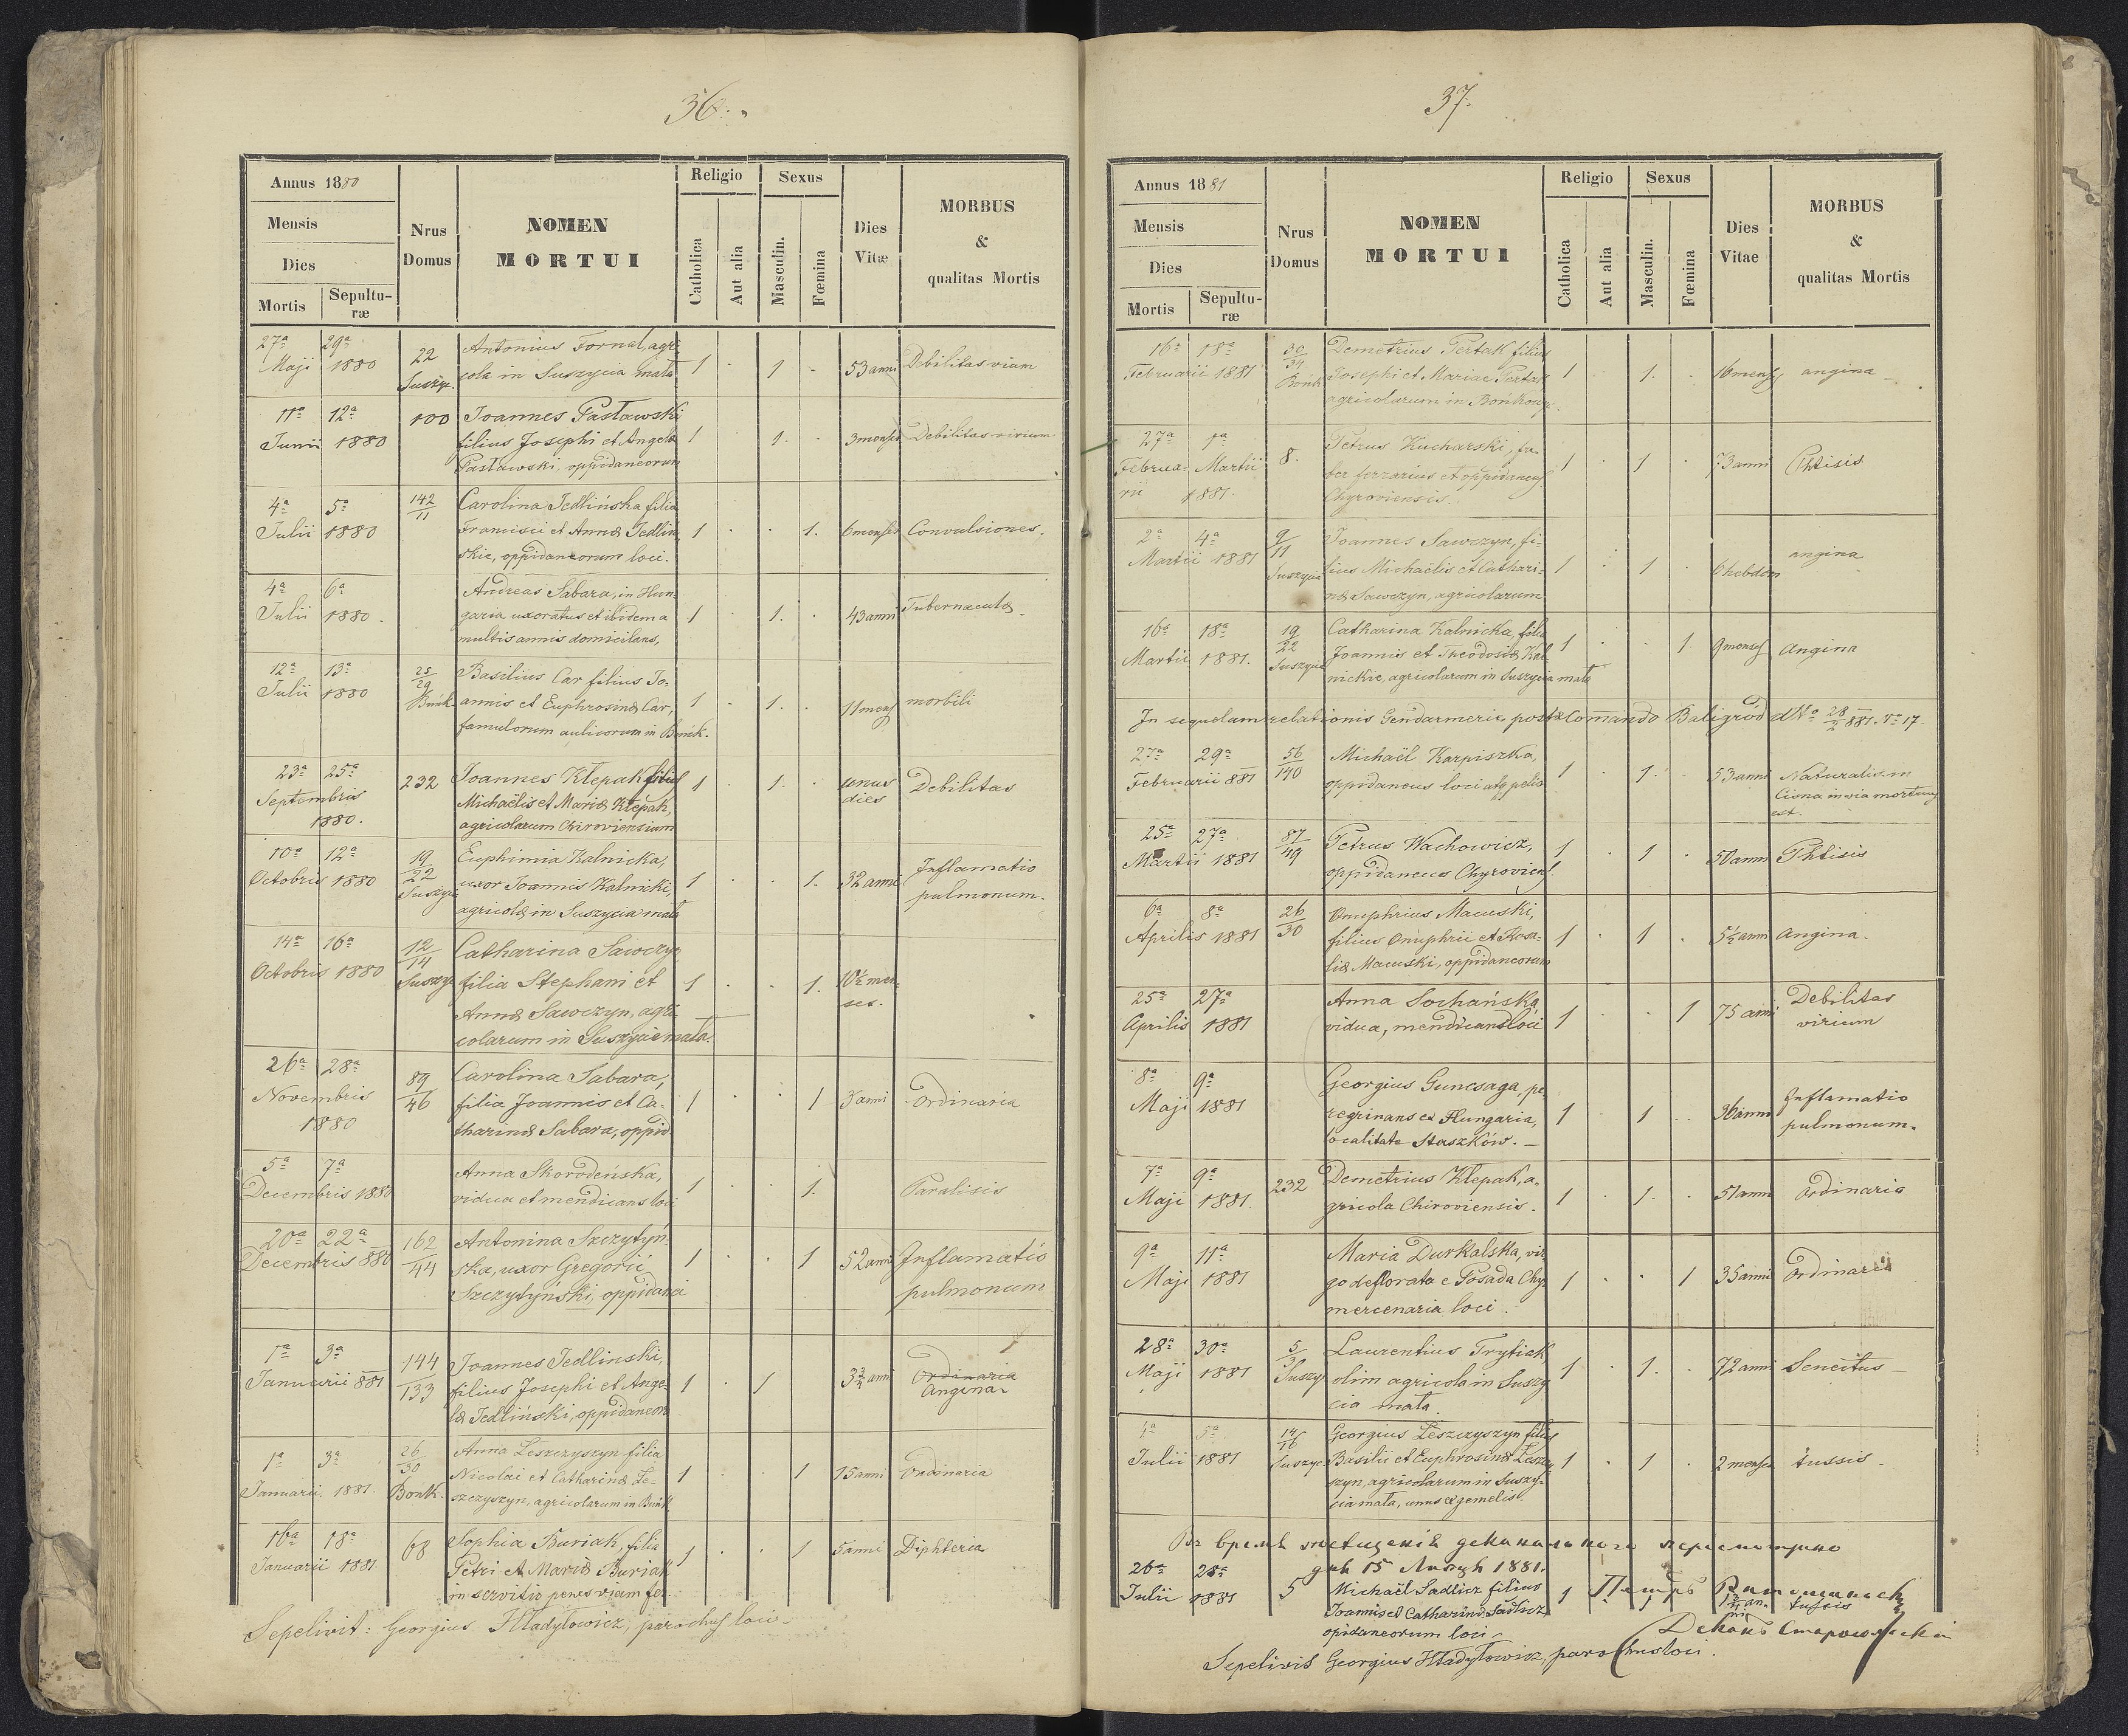 36.
Annus 1880
Mensis
Dies
Mortis
Sepulturæ
Nrus Domus
NOMEN
MORTUI
Religio
Catholica
Aut alia
Sexus
Masculin.
Fœmina
Dies Vitæ
MORBUS
&
qualitas Mortis
27ª 29ª 22 Antonius Fornal, agri-
Maji 1880 Suszyc. cola in Suszycia mała 1 · 1 · 53 anni Debilitas virium
11ª 12ª 100 Joannes Pasławski
Junii 1880 filius Josephi et Angelæ 1 · 1. · 3 menses Debilitas virium
Pasławski, oppidaneorum
4ª 5ª 142/11 Carolina Jedlińska filia
Julii 1880 Francisci et Annæ Jedliń- 1 · · 1. 6 menses Convulsiones.
skie, oppidaneorum loci.
4ª 6ª Andreas Sabara, in Hun-
Julii 1880. garia uxoratus et ibidem a 1 · 1. · 43 anni Tubernaculæ
multis annis domicilans,
12ª 13ª 25/29 Basilius Car filius Jo-
Julii 1880 Bónk. annis et Euphrosinæ Car, 1 · 1. · 11 mens morbili
famulorum aulicorum in Bónk.
23ª 25ª 232 Joannes Kłepak filius 1 · 1. · unus Debilitas
Septembris Michaëlis et Mariæ Kłepak, dies
1880. agricolarum Chiroviensium
10ª 12ª 19/22 Euphimia Kalnicka, Inflamatio
Octobris 1880 Suszyc uxor Joannis Kalnicki, 1 · · 1. 32 anni pulmonum.
agricolæ in Suszycia mała
14ª 16ª 12/14 Catharina Sawczyn
Octobris 1880 Suszyc filia Stephani et 1 · · 1. 10½ men-
Annæ Sawczyn, agri- ses.
colarum in Suszycie mała.
26ª 28ª 89/46 Carolina Sabara,
Novembris filia Joannis et Ca- 1 · · 1 3 anni Ordinaria
1880 tharinæ Sabara, oppid.
5ª 7ª Anna Skorodeńska,
Decembris 1880 vidua et mendicans loci 1 · · 1. Paralisis
20ª 22ª 162/44 Antonina Szczytyń-
Decembris 880 ska, uxor Gregorii 1 · · 1 52 anni Inflamatio
Szczytyński, oppidanei pulmonum
1ª 3ª 144/133 Joannes Jedlinski,
Januarii 881 filius Josephi et Ange- 1 · 1 3¾ anni Ordinaria
læ Jedliński, oppidaneor. Angina
1ª 3ª 26/30 Anna Leszczyszyn filia
Januarii. 1881. Bonk. Nicolai et Catharinæ Le- 1 · · 1 15 anni Ordinaria
szczyszyn, agricolarum in Bónk
16ª 18ª 68 Sophia Buriak, filia
Januarii 1881 Petri et Mariæ Buriak 1 · · 1 5 anni Diphteria
in servitio penes viam fer.
Sepelivit: Georgius Hładyłowicz, parochus loci
37.
Annus 1881
Mensis
Dies
Mortis
Sepulturæ
Nrus Domus
NOMEN
MORTUI
Religio
Catholica
Aut alia
Sexus
Masculin.
Fœmina
Dies Vitae
MORBUS
&
qualitas Mortis
16ª 18ª 30/34 Demetrius Pertak filius
Februarii 1881 Bonk Josephi et Mariae Pertak 1 · 1. · 16 mens angina
agricolarum in Bonkowy.
27ª 1ª 8. Petrus Kucharski, fa-
Februa- Martii ber ferrarius et oppidaneus 1 · 1 · 73 anni Phtisis
rii 1881. Chyroviensis.
2ª 4ª 9/11 Joannes Sawczyn, fi-
Martii 1881 Suszycia lius Michaëlis et Cathari- 1 · 1 · 6 hebdom angina
næ Sawczyn, agricolarum
16ª 18ª 19/22 Catharina Kalnicka, filia
Martii 1881. Suszycia Joannis et Theodosiæ Kal- 1 · · 1. 9 mens Angina
nickie, agricolarum in Suszycia mała
In sequelam relationis Gendarmerie posts Comando Baligród dto 28/2 881. No 17.
27ª 29ª 56/140 Michaël Karpiszka,
Februarii 881 oppidaneus loci atq pelio 1 · 1. · 53 anni Naturalis in
Cisna in via mortuus
est.
25ª 27ª 87/49 Petrus Wachowicz,
Martii 1881 oppidaneus Chyroviens. 1 · 1 · 50 anni Phtisis
6ª 8ª 26/30 Onuphrius Macuski,
Aprilis 1881 filius Onuphrii et Rosa- 1 · 1 · 5½ anni Angina.
liæ Macuski, oppidaneorum
25ª 27ª Anna Sochańska, Debilitas
Aprilis 1881 vidua, mendicans loci 1 · · 1 75 anni virium
8ª 9ª Georgius Guncsaga, pe-
Maji 1881 regrinans ex Hungaria, 1 · 1 · 36 anni Inflamatio
localitate Staszków. pulmonum.
7ª 9ª 232 Demetrius Kłepak, a-
Maji 1881. gricola Chiroviensis. 1 · 1. · 51 anni Ordinaria
9ª 11ª Maria Durkalska, vir-
Maji 1881 go deflorata e Posada Chyr. 1 · · 1 35 anni Ordinaria
mercenaria loci.
28ª 30ª 5/3 Laurentius Trytiak,
Maji 1881 Suszy olim agricola in Suszy- 1 · 1. · 72 anni Senectus
cia mała.
4ª 5ª 14/16 Georgius Leszczyszyn filius
Julii 1881 Suszyc. Basilii et Euphrosinæ Leszczy- 1 · 1 · 2 menses tussis
szyn, agricolarum in Suszy-
cia mała, unus ex gemelis.
Въ время посѣщенія деканального пересмотрено
дня 15 1881.
26ª 28ª 5 Michaël Sadlicz filius 1 Петръ
Julii 1881 Joannis et Catharinæ Sadlicz 1 tussis
opidaneorum loci
Деканъ Старосольскій
Sepelivit Georgius Hładyłowicz, parochus loci.